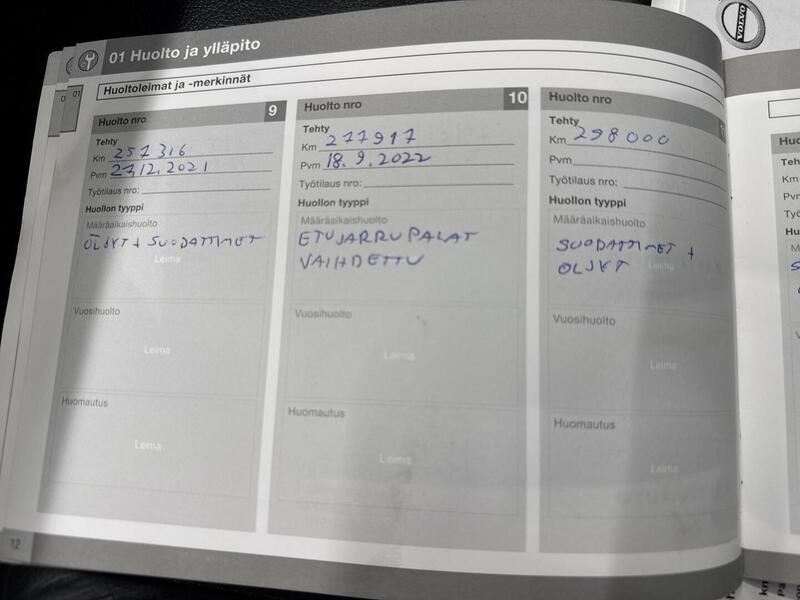 01 Huolto ja ylläpito
Huoltoleimat ja -merkinnät
Huolto nro 9
Tehty
Km 257316
Pvm 27.12.2021
Työtilaus nro:
Huollon tyyppi
Määräaikaishuolto
ÖLJYT + SUODATTIMET
Leima
Vuosihuolto
Leima
Huomautus
Leima
Huolto nro 10
Tehty
Km 277917
Pvm 18.9.2022
Työtilaus nro:
Huollon tyyppi
Määräaikaishuolto
ETUJARRUPALAT
VAIHDETTU
Vuosihuolto
Leima
Huomautus
Leima
Huolto nro
Tehty
Km 298000
Pvm
Työtilaus nro:
Huollon tyyppi
Määräaikaishuolto
SUODATTIMET +
ÖLJYT
Leima
Vuosihuolto
Leima
Huomautus
Leima
12
VOLVO
Km